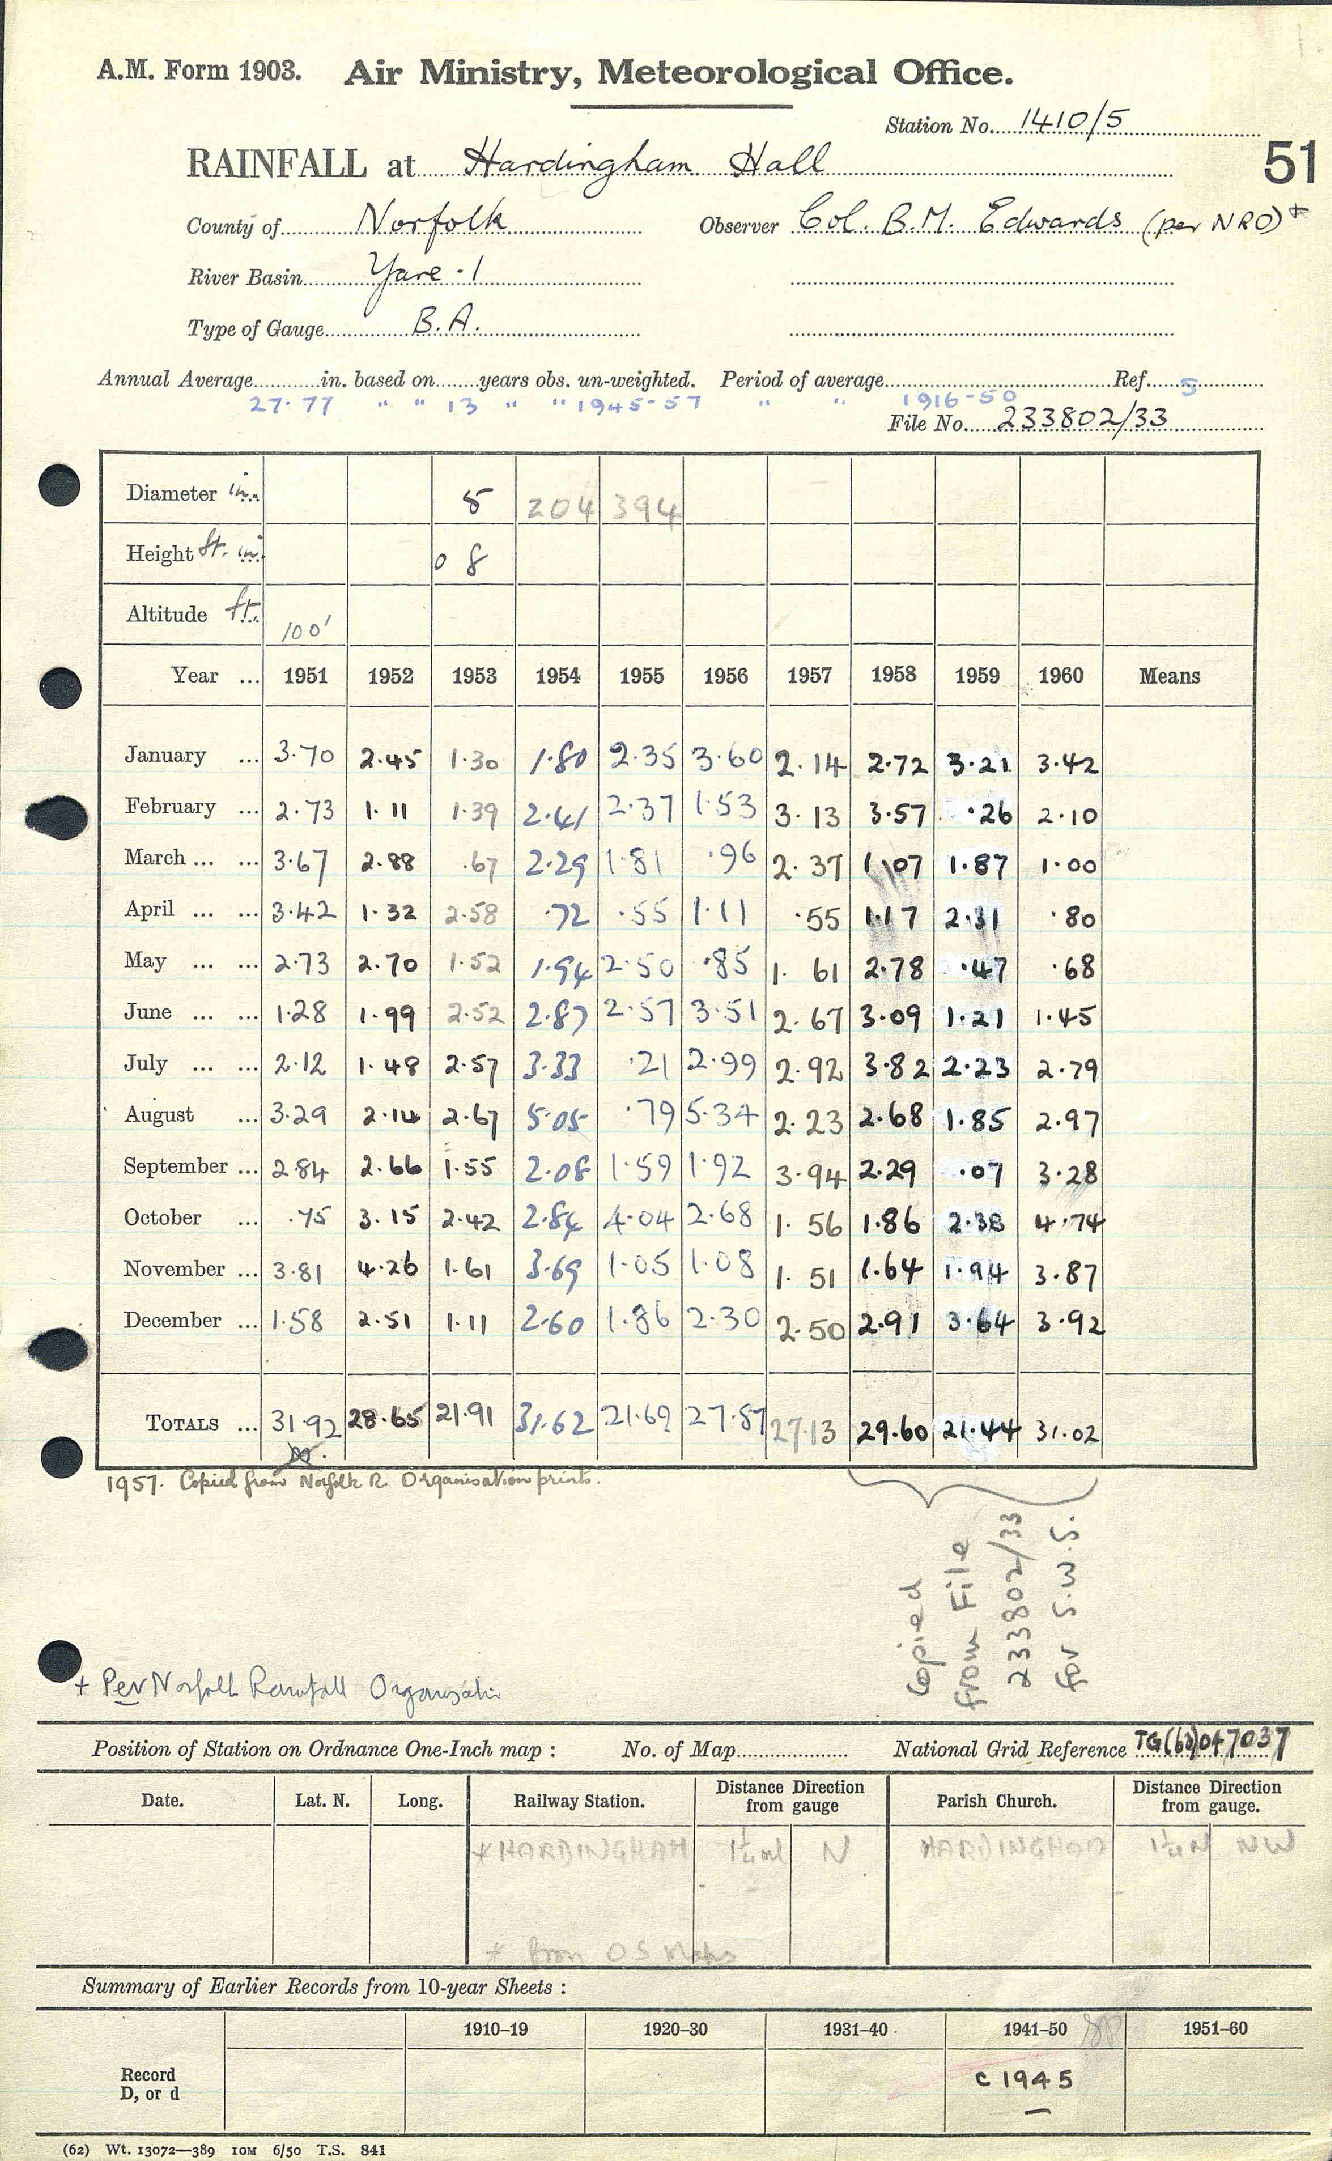 A.M. Form 1903. Air Ministry, Meteorological Office.
Station No. 1410/5
RAINFALL at Hardingham Hall
51
County of Norfolk Observer Col. B.M. Edwards (per NRO)+
River Basin Yare - 1
Type of Gauge B.A.
Annual Average in. based on years obs. un-weighted. Period of average Ref. 5
27.77 " " 13 " " 1945-57 " " 1916-50
File No. 233802/33
Diameter in. 5 204 394
Height ft. in. 0 8
Altitude ft. 100'
Year ... 1951 1952 1953 1954 1955 1956 1957 1958 1959 1960 Means
January ... 3.70 2.45 1.30 1.80 2.35 3.60 2.14 2.72 3.21 3.42
February ... 2.73 1.11 1.39 2.41 2.37 1.53 3.13 3.57 .26 2.10
March ... ... 3.67 2.88 .67 2.29 1.81 .96 2.37 1.07 1.87 1.00
April ... ... 3.42 1.32 2.58 .72 .55 1.11 .55 1.17 2.31 .80
May ... ... 2.73 2.70 1.52 1.94 2.50 .85 1.61 2.78 .47 .68
June ... ... 1.28 1.99 2.52 2.87 2.57 3.51 2.67 3.09 1.21 1.45
July ... ... 2.12 1.48 2.57 3.33 .21 2.99 2.92 3.82 2.23 2.79
August ... 3.29 2.14 2.67 5.05 .79 5.34 2.23 2.68 1.85 2.97
September ... 2.84 2.66 1.55 2.08 1.59 1.92 3.94 2.29 .07 3.28
October ... .75 3.15 2.42 2.84 4.04 2.68 1.56 1.86 2.38 4.74
November ... 3.81 4.26 1.61 3.69 1.05 1.08 1.51 1.64 1.94 3.87
December ... 1.58 2.51 1.11 2.60 1.86 2.30 2.50 2.91 3.64 3.92
TOTALS ... 31.92 28.65 21.91 31.62 21.69 27.87 27.13 29.60 21.44 31.02
1957. Copied from Norfolk R. Organisation prints.
Copied
from File
233802/33
for S.W.S.
+ Per Norfolk Rainfall Organisatio
Position of Station on Ordnance One-Inch map : No. of Map National Grid Reference TG(63)047037
Date. Lat. N. Long. Railway Station. Distance Direction from gauge Parish Church. Distance Direction from gauge.
*HARDINGHAM 1¼ml N HARDINGHAM 1¼M NW
* from OS Maps
Summary of Earlier Records from 10-year Sheets :
1910-19 1920-30 1931-40 1941-50 1951-60
Record
D, or d
c 1945
(62) Wt. 13072—389 10M 6/50 T.S. 841